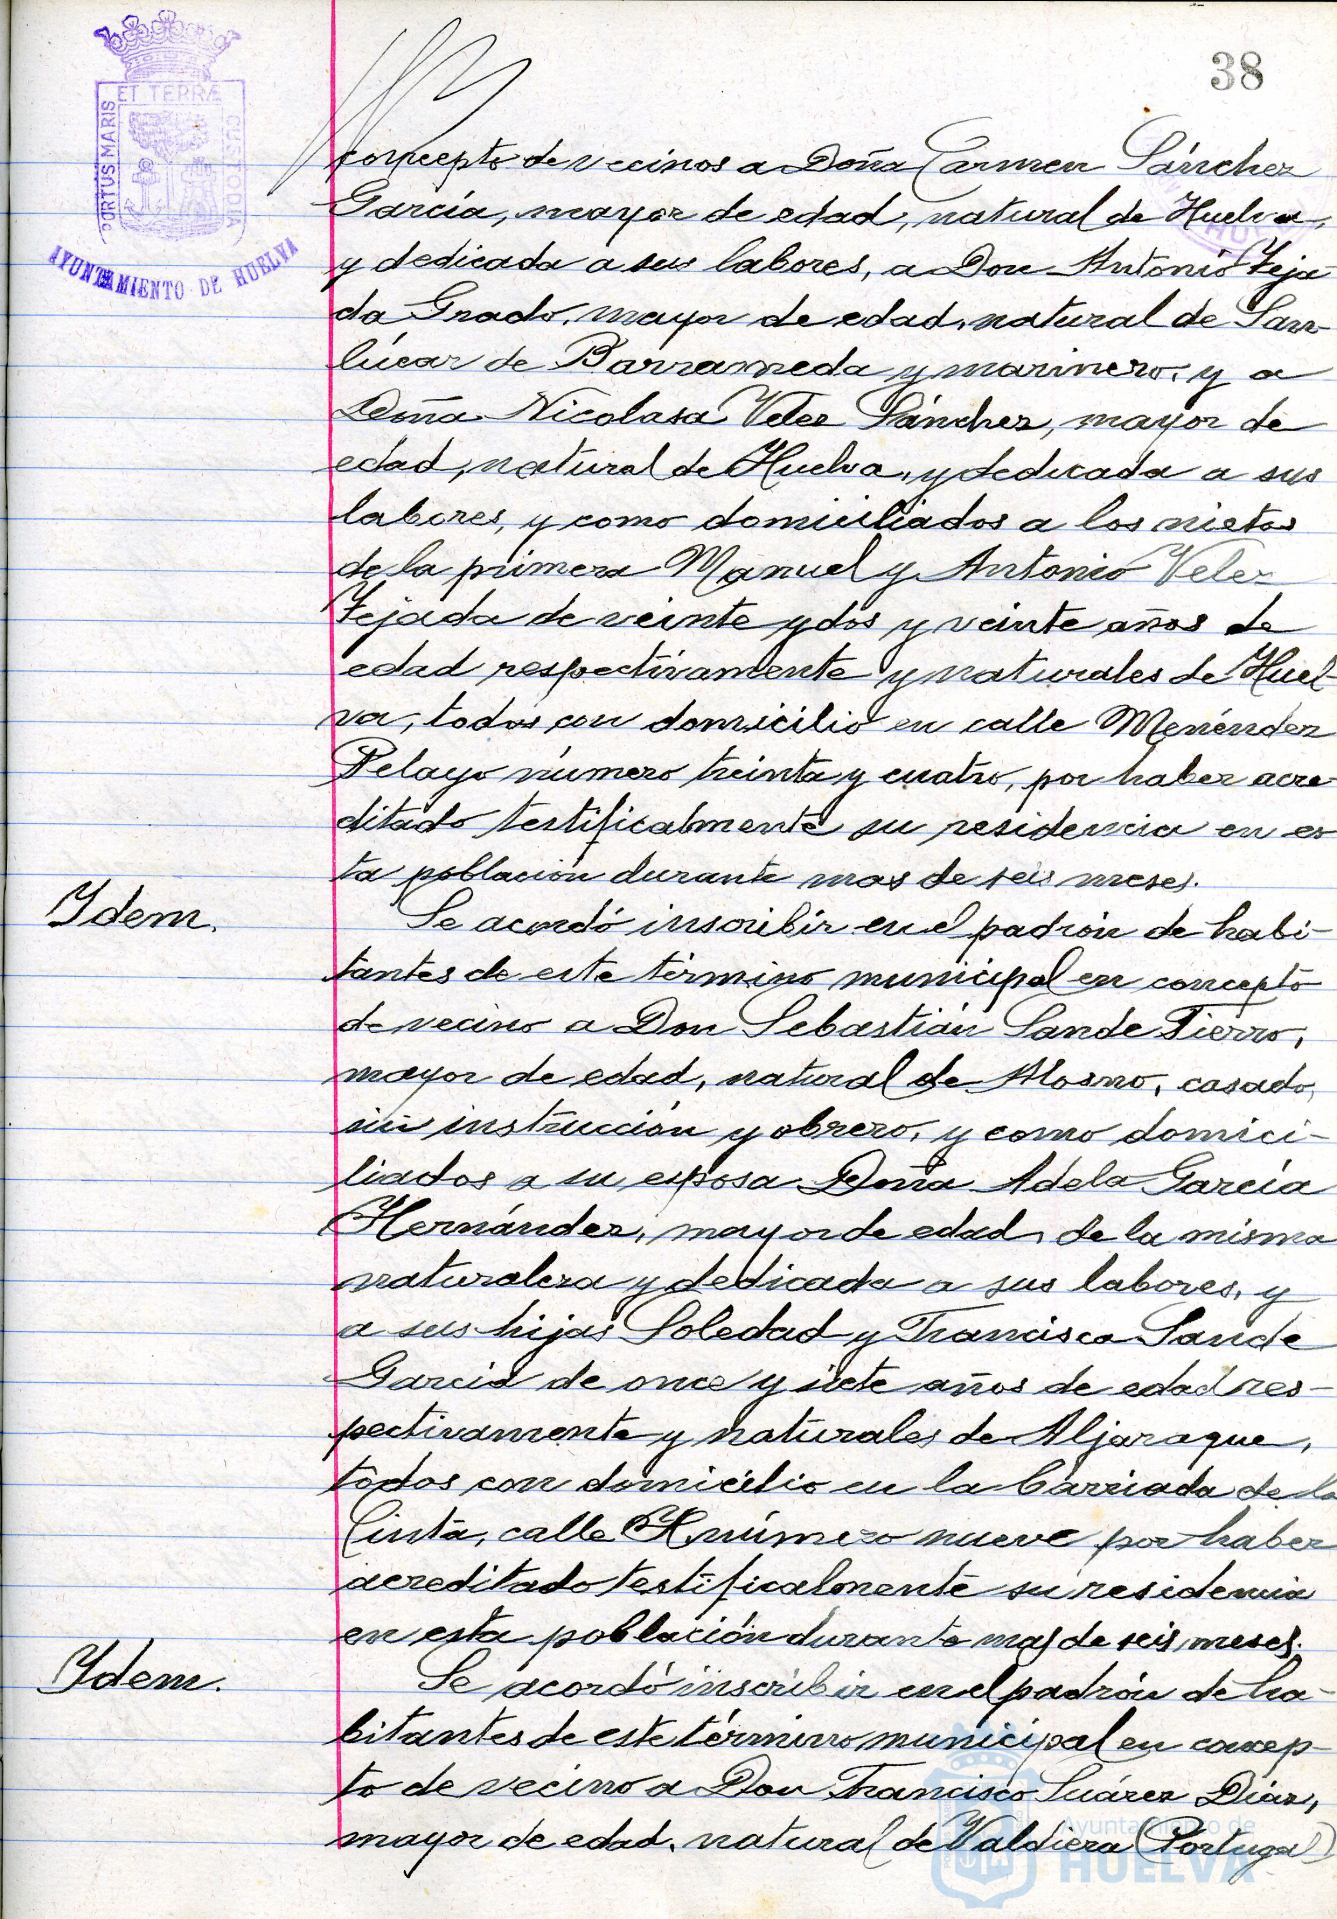 38
ET TERRÆ
PORTUS MARIS
CUSTODIA
AYUNTAMIENTO DE HUELVA
concepto de vecinos a Doña Carmen Sánchez
García, mayor de edad, natural de Huelva,
y dedicada a sus labores, a Don Antonio Teja-
da Grado, mayor de edad, natural de San-
lúcar de Barrameda y marinero, y a
Doña Nicolasa Velez Sánchez, mayor de
edad, natural de Huelva, y dedicada a sus
labores, y como domiciliados a los nietos
de la primera Manuel y Antonio Velez
Tejada de veinte y dos y veinte años de
edad respectivamente y naturales de Huel-
va, todos con domicilio en calle Menéndez
Pelayo número treinta y cuatro, por haber acre-
ditado testificalmente su residencia en es-
ta población durante mas de seis meses.
Ydem.
Se acordó inscribir en el padrón de habi-
tantes de este término municipal en concepto
de vecino a Don Sebastián Sande Fierro,
mayor de edad, natural de Alosno, casado,
sin instrucción y obrero, y como domici-
liados a su esposa Doña Adela García
Hernández, mayor de edad, de la misma
naturaleza y dedicada a sus labores, y
a sus hijas Soledad y Francisca Sande
Garcia de once y siete años de edad res-
pectivamente y naturales de Aljaraque,
todos con domicilio en la barriada de la
Cinta, calle H número nueve por haber
acreditado testificalmente su residencia
en esta población durante mas de seis meses.
Ydem.
Se acordó inscribir en el padrón de ha-
bitantes de este término municipal en concep-
to de vecino a Don Francisco Suárez Diaz,
mayor de edad, natural de Valdiera (Portugal)
Ayuntamiento de
HUELVA